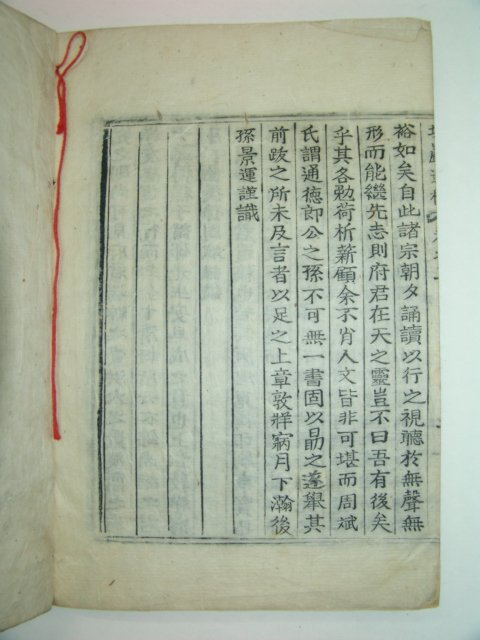 裕如矣自此諸宗朝夕誦讀以行之視聽於無聲無
形而能繼先志則府君在天之靈豈不曰吾有後矣
乎其各勉荷析薪顧余不肖人文皆非可堪而周斌
氏謂通德郞公之孫不可無一書固以勗之遂擧其
前跋之所未及言者以足之上章敦牂寎月下瀚後
孫景運謹識